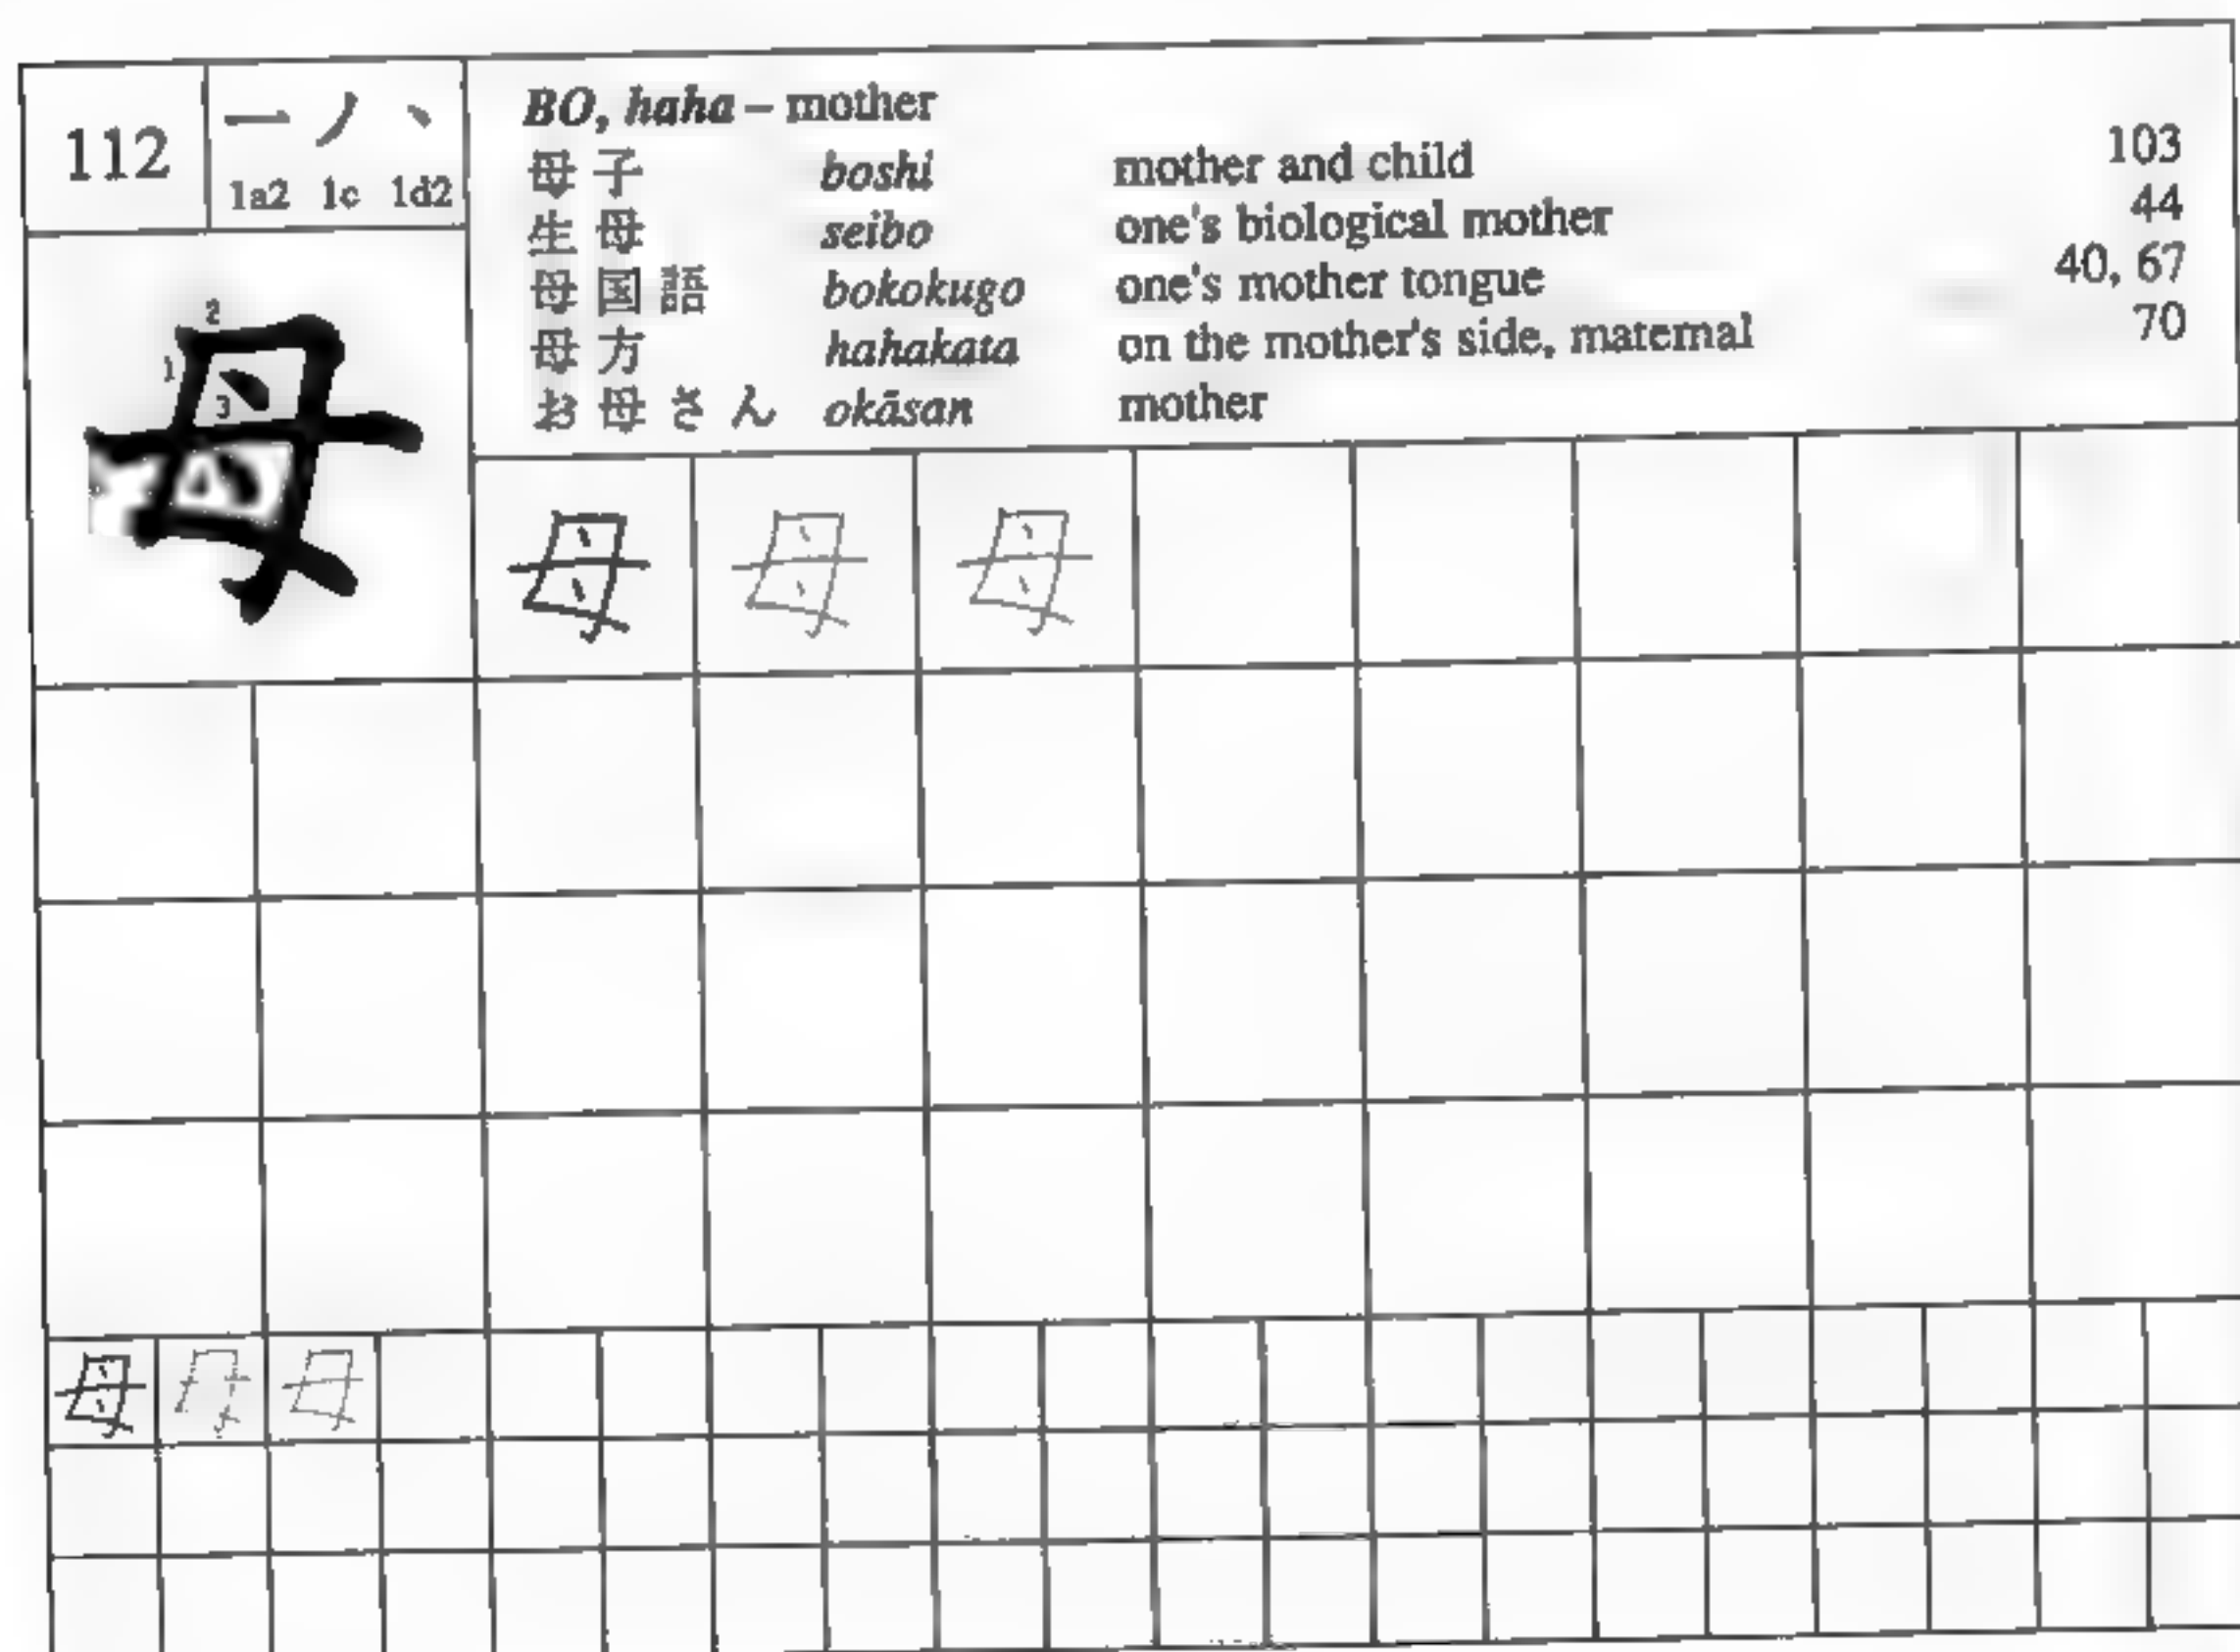 112
一 ノ 丶
1a2 1c 1d2
BO, haha – mother
母子 boshi mother and child 103
生母 seibo one's biological mother 44
母国語 bokokugo one's mother tongue 40, 67
母方 hahakata on the mother's side, maternal 70
お母さん okāsan mother
2
1
3
母
母 母 母
母 母 母